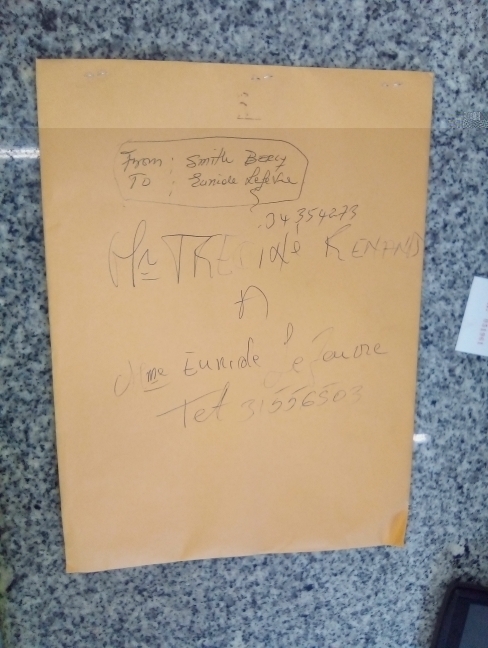 From : Smith Beecy
To : Eunide Lefevre
04354273
Mr TRESIDE RENAND
A
Mme Eunide Lefevre
Tel 31556503